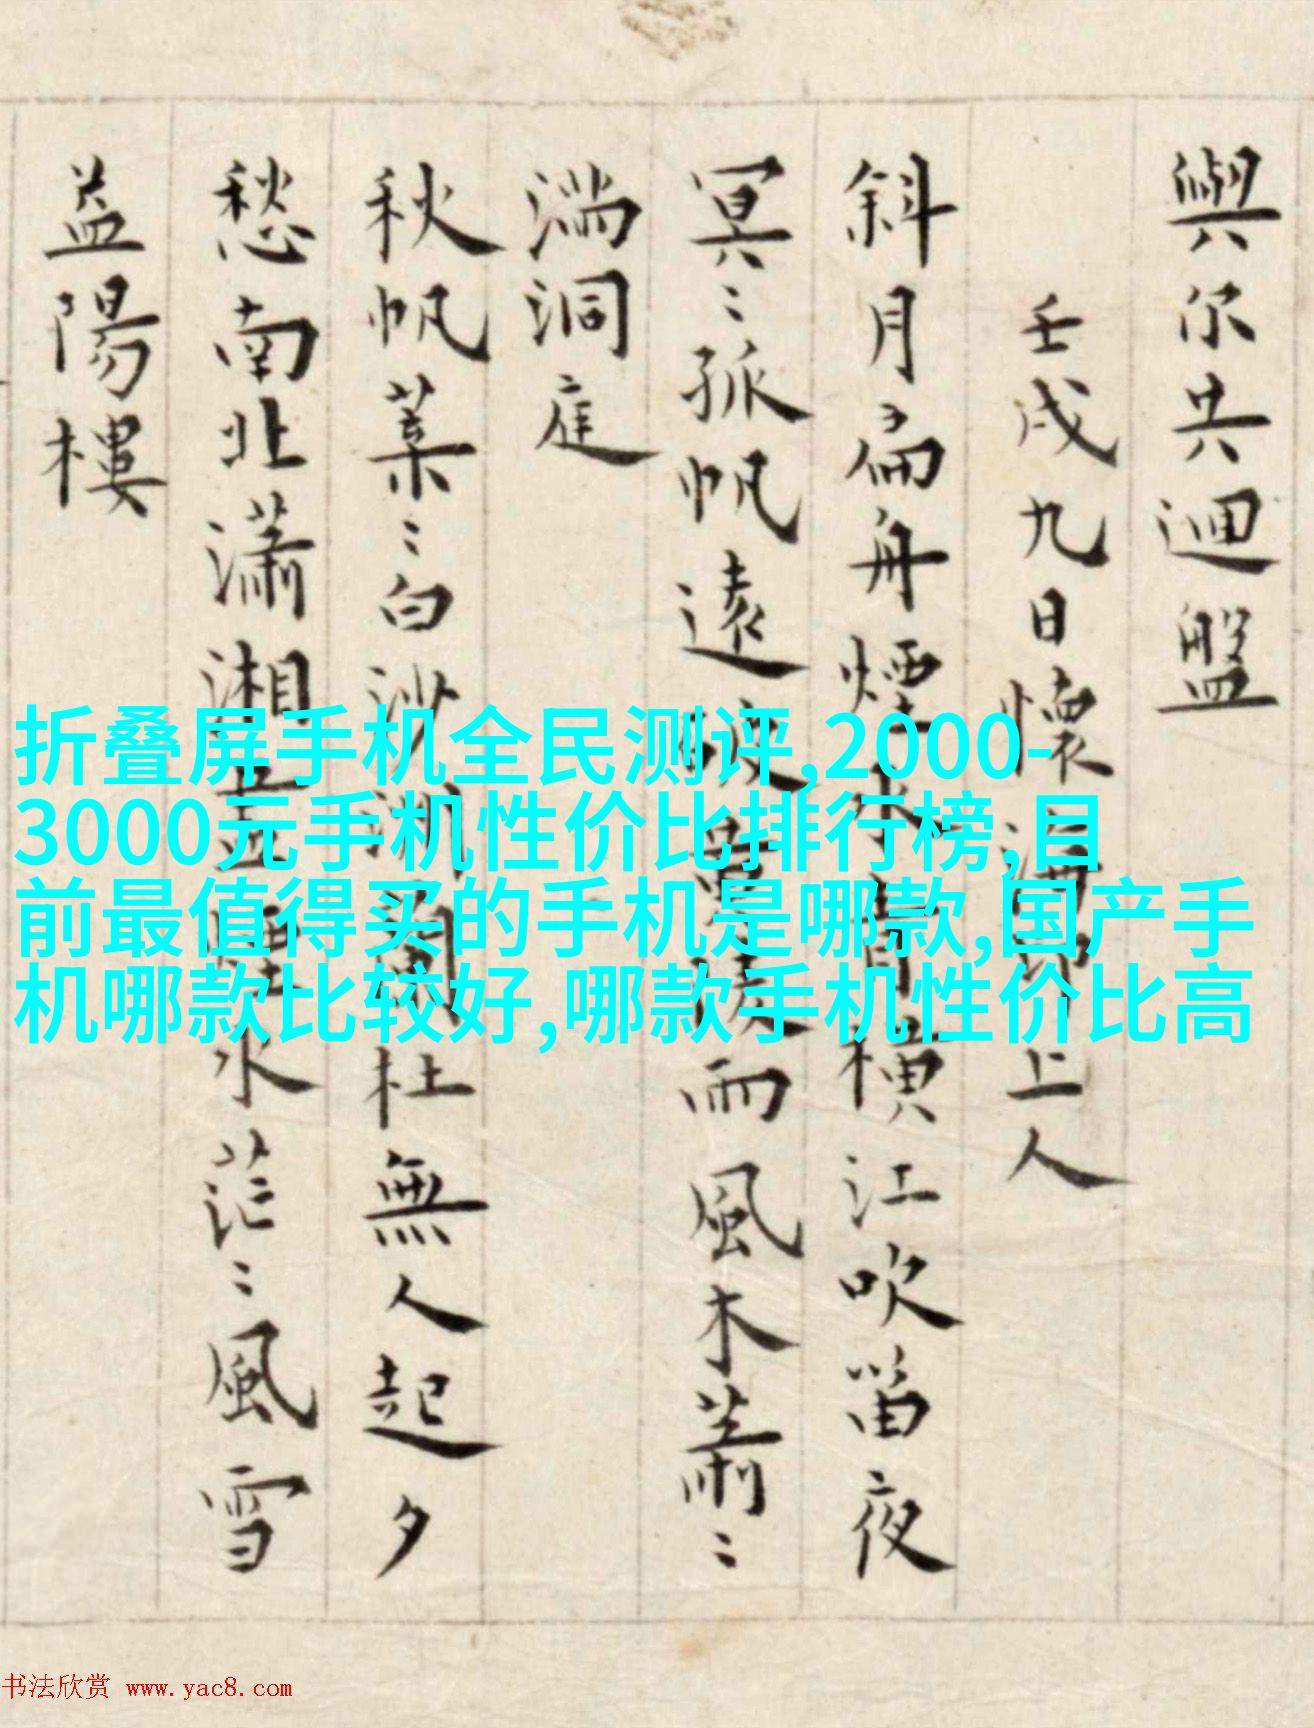 與尔共迴盤
壬戌九日懷
上人
斜月扁舟煙水
橫江吹笛夜
冥〻孤帆遠
而風木蕭〻
湍洞庭
秋帆葉〻白沙洲
杜無人起夕
愁南北瀟湘
水茫〻風雪
益陽樓
折叠屏手机全民测评,2000-
3000元手机性价比排行榜,目
前最值得买的手机是哪款,国产手
机哪款比较好,哪款手机性价比高
书法欣赏 www.yac8.com